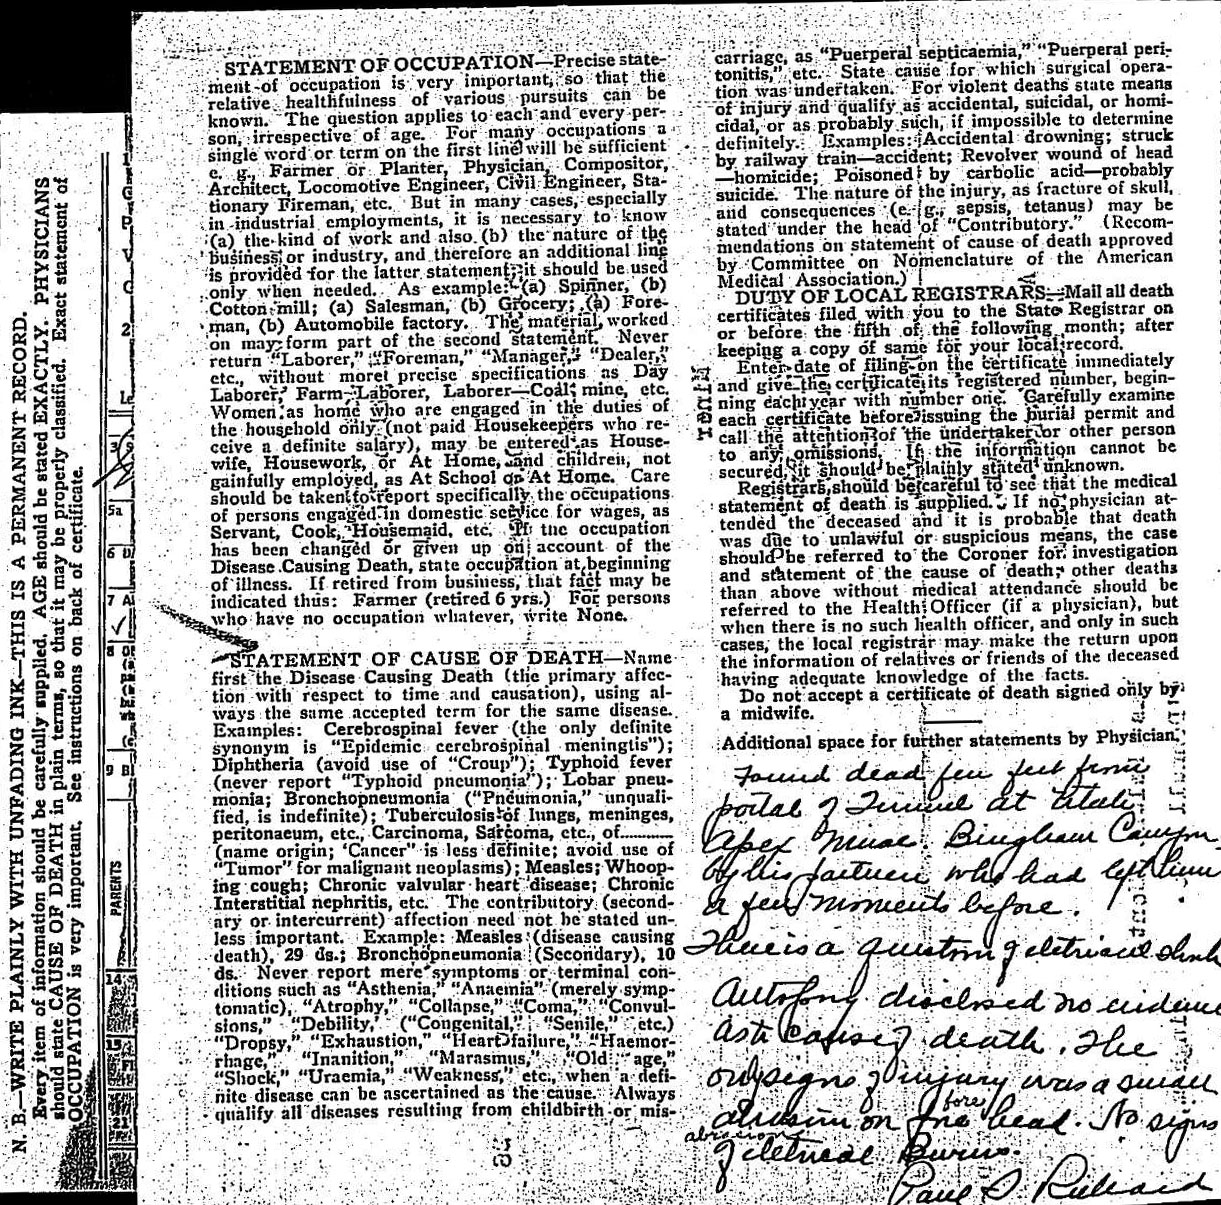 N. B.—WRITE PLAINLY WITH UNFADING INK—THIS IS A PERMANENT RECORD.
Every item of information should be carefully supplied. AGE should be stated EXACTLY. PHYSICIANS
should state CAUSE OF DEATH in plain terms, so that it may be properly classified. Exact statement of
OCCUPATION is very important. See instructions on back of certificate.
5a
6
7 A
8
9 B
PARENTS
14
15
21
STATEMENT OF OCCUPATION—Precise state-
ment of occupation is very important, so that the
relative healthfulness of various pursuits can be
known. The question applies to each and every per-
son, irrespective of age. For many occupations a
single word or term on the first line will be sufficient
e. g., Farmer or Planter, Physician, Compositor,
Architect, Locomotive Engineer, Civil Engineer, Sta-
tionary Fireman, etc. But in many cases, especially
in industrial employments, it is necessary to know
(a) the kind of work and also (b) the nature of the
business or industry, and therefore an additional line
is provided for the latter statement; it should be used
only when needed. As example: (a) Spinner, (b)
Cotton mill; (a) Salesman, (b) Grocery; (a) Fore-
man, (b) Automobile factory. The material worked
on may form part of the second statement. Never
return "Laborer," "Foreman," "Manager," "Dealer,"
etc., without more precise specifications as Day
Laborer, Farm Laborer, Laborer—Coal mine, etc.
Women as home who are engaged in the duties of
the household only (not paid Housekeepers who re-
ceive a definite salary), may be entered as House-
wife, Housework, or At Home, and children, not
gainfully employed, as At School or At Home. Care
should be taken to report specifically the occupations
of persons engaged in domestic service for wages, as
Servant, Cook, Housemaid, etc. If the occupation
has been changed or given up on account of the
Disease Causing Death, state occupation at beginning
of illness. If retired from business, that fact may be
indicated thus: Farmer (retired 6 yrs.) For persons
who have no occupation whatever, write None.
STATEMENT OF CAUSE OF DEATH—Name
first the Disease Causing Death (the primary affec-
tion with respect to time and causation), using al-
ways the same accepted term for the same disease.
Examples: Cerebrospinal fever (the only definite
synonym is "Epidemic cerebrospinal meningtis");
Diphtheria (avoid use of "Croup"); Typhoid fever
(never report "Typhoid pneumonia"); Lobar pneu-
monia; Bronchopneumonia ("Pneumonia," unquali-
fied, is indefinite); Tuberculosis of lungs, meninges,
peritonaeum, etc., Carcinoma, Sarcoma, etc., of..........
(name origin; 'Cancer" is less definite; avoid use of
"Tumor" for malignant neoplasms); Measles; Whoop-
ing cough; Chronic valvular heart disease; Chronic
Interstitial nephritis, etc. The contributory (second-
ary or intercurrent) affection need not be stated un-
less important. Example: Measles (disease causing
death), 29 ds.; Bronchopneumonia (Secondary), 10
ds. Never report mere symptoms or terminal con-
ditions such as "Asthenia," "Anaemia" (merely symp-
tomatic), "Atrophy," "Collapse," "Coma," "Convul-
sions," "Debility," ("Congenital," "Senile," etc.)
"Dropsy," "Exhaustion," "Heart failure," "Haemor-
rhage," "Inanition," "Marasmus," "Old age,"
"Shock," "Uraemia," "Weakness," etc., when a defi-
nite disease can be ascertained as the cause. Always
qualify all diseases resulting from childbirth or mis-
carriage, as "Puerperal septicaemia," "Puerperal peri-
tonitis," etc. State cause for which surgical opera-
tion was undertaken. For violent deaths state means
of injury and qualify as accidental, suicidal, or homi-
cidal, or as probably such, if impossible to determine
definitely. Examples: Accidental drowning; struck
by railway train—accident; Revolver wound of head
—homicide; Poisoned by carbolic acid—probably
suicide. The nature of the injury, as fracture of skull,
and consequences (e. g., sepsis, tetanus) may be
stated under the head of "Contributory." (Recom-
mendations on statement of cause of death approved
by Committee on Nomenclature of the American
Medical Association.)
DUTY OF LOCAL REGISTRARS—Mail all death
certificates filed with you to the State Registrar on
or before the fifth of the following month; after
keeping a copy of same for your local record.
Enter date of filing on the certificate immediately
and give the certificate its registered number, begin-
ning each year with number one. Carefully examine
each certificate before issuing the burial permit and
call the attention of the undertaker or other person
to any omissions. If the information cannot be
secured, it should be plainly stated unknown.
Registrars should be careful to see that the medical
statement of death is supplied. If no physician at-
tended the deceased and it is probable that death
was due to unlawful or suspicious means, the case
should be referred to the Coroner for investigation
and statement of the cause of death; other deaths
than above without medical attendance should be
referred to the Health Officer (if a physician), but
when there is no such health officer, and only in such
cases, the local registrar may make the return upon
the information of relatives or friends of the deceased
having adequate knowledge of the facts.
Do not accept a certificate of death signed only by
a midwife.
Additional space for further statements by Physician.
Found dead few feet from
portal of Tunnel at Utah
Apex Mine. Bingham Canyon
by his partner who had left him
a few moments before.
There is a question of eletrical shock
Autopsy disclosed no evidence
as to cause of death. The
only signs of injury was a small
abrasion on fore head. No signs
abrasion
of eletrical Burns.
Paul S. Richards